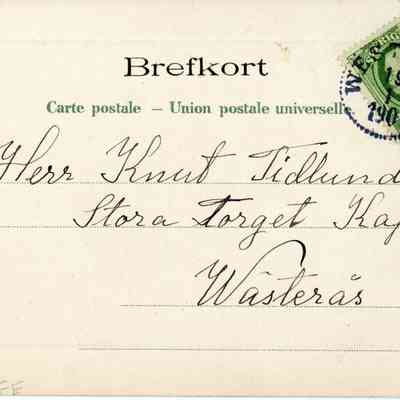 Brefkort
Carte postale – Union postale universelle
WES
190
Herr Knut Tidlund
Stora Torget
Wästerås